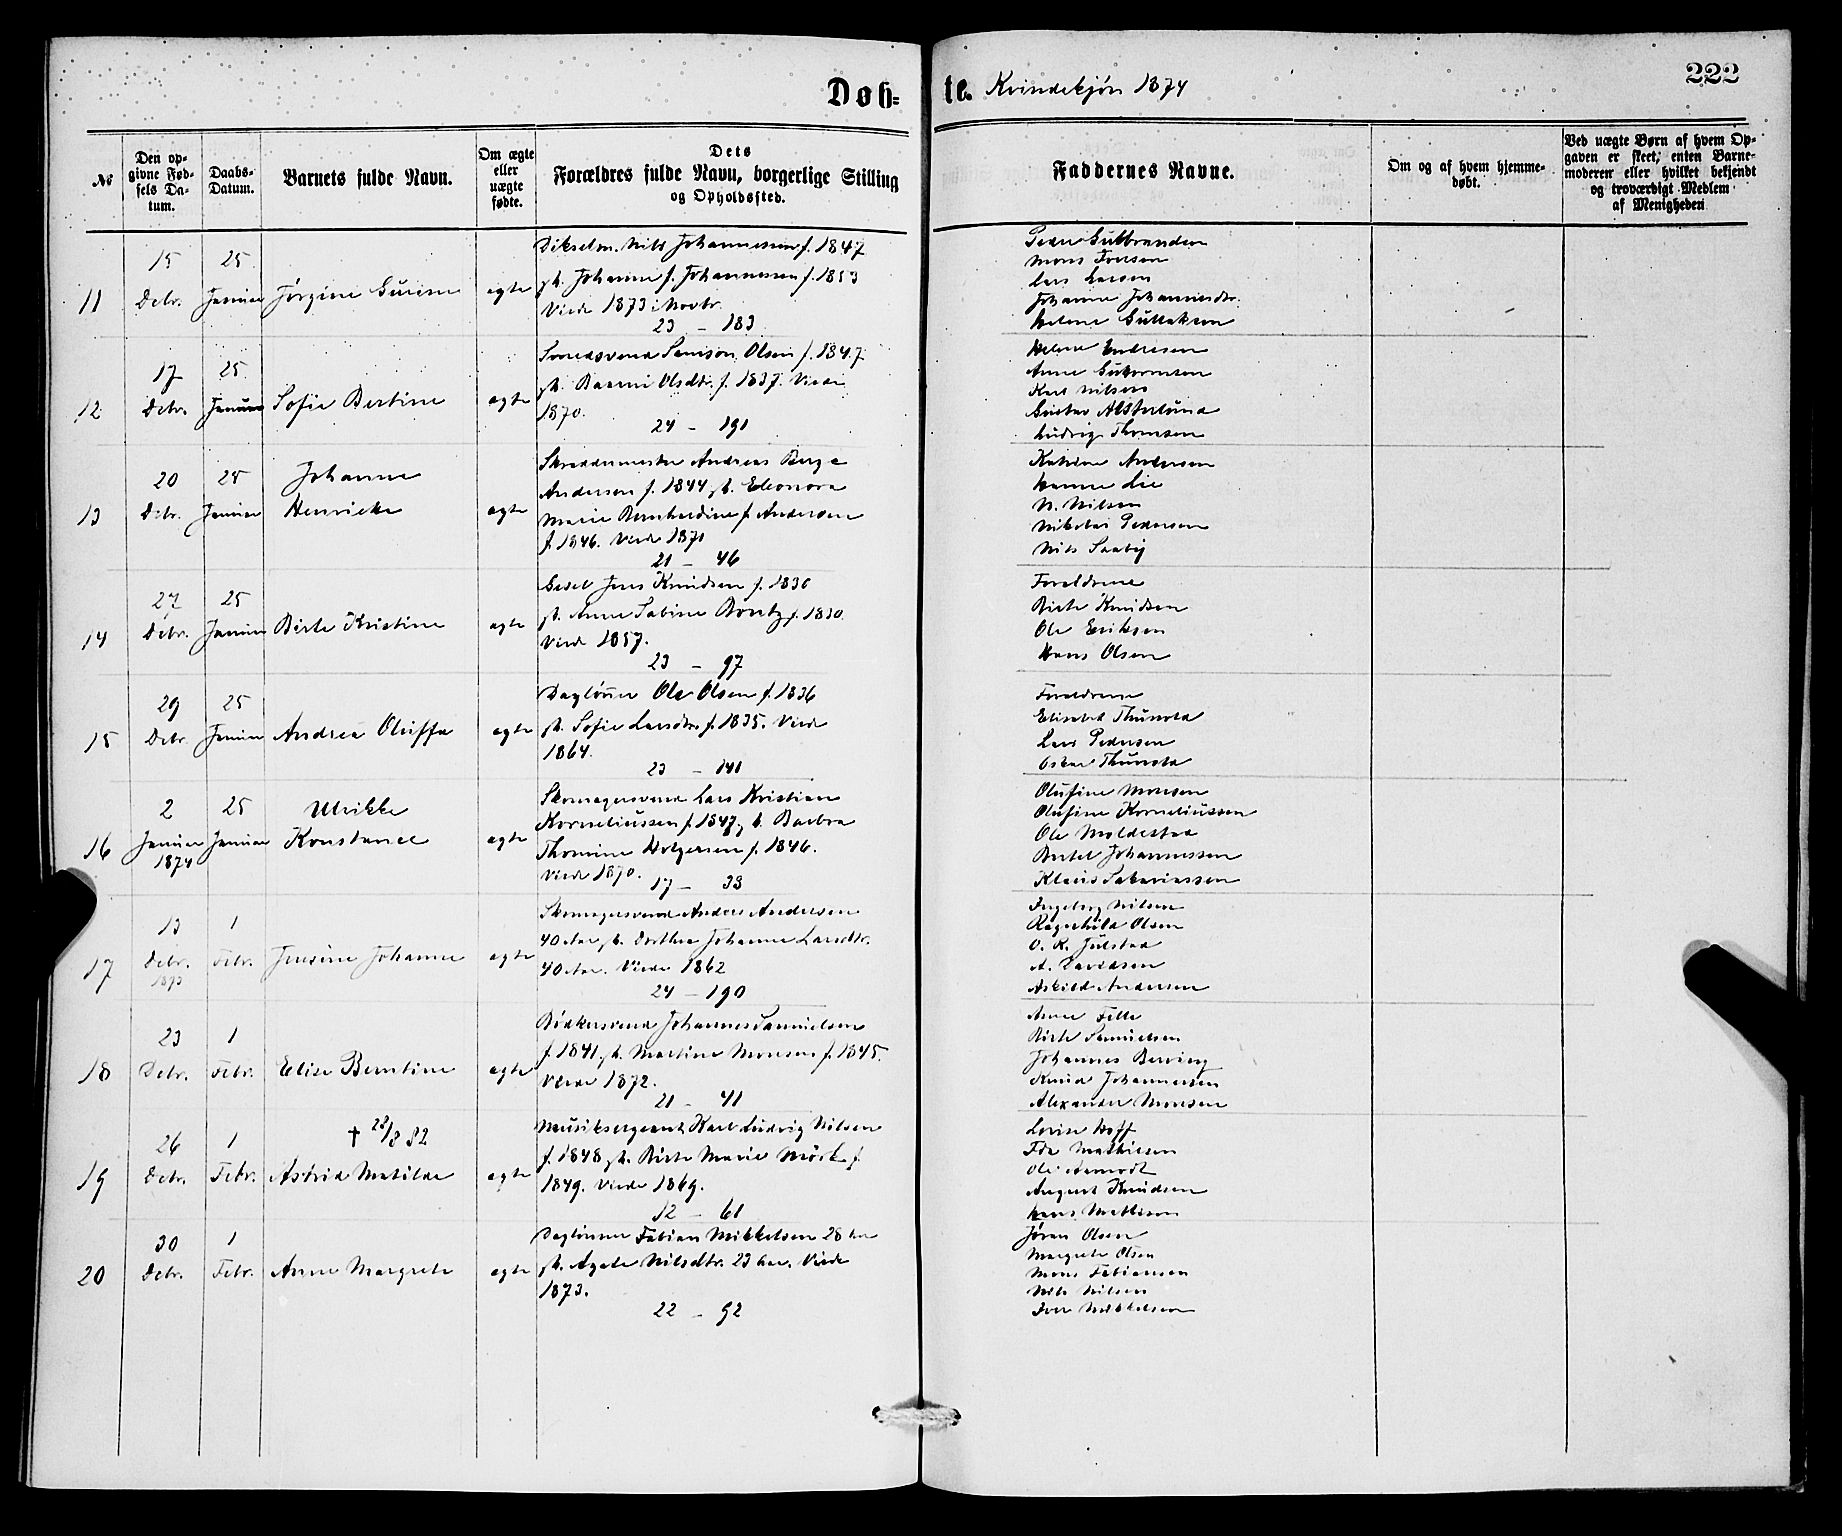 Døb=
te. Kvindekjøn 1874
222
No
Den op=
givne Fød=
sels Da=
tum.
Daabs=
Datum.
Barnets fulde Navn.
Om ægte
eller
uægte
fødte.
Dets
Forældres fulde Navn, borgerlige Stilling
og Opholdssted.
Faddernes Navne.
Om og af hvem hjemme=
døbt.
Ved uægte Børn af hvem Op=
gaven er skeet, enten Barne=
moderen eller hvilket bekjendt
og troværdigt Medlem
af Menigheden
11
15
Debr.
25
Januar
Jørgine
ægte
Nils Johannessen f. 1847
gh. Johanne f. Johannessen f. 1853
Viede 1873 i Novbr.
23 – 183
Peder Gulbrandsen
Mons
Lars Larsen
Johanne Johannesdtr.
Helene
12
17
Debr.
25
Januar
Sofie Bertine
ægte
Smedsvend Samson Olsen f. 1847
gh. Olsdtr. f. 1837. Viede
1870.
24 – 191
Helene Endresen
Anne Guttormsen
Karl Nilsen
Gustav
Ludvig Thomsen
13
20
Debr.
25
Januar
Johanne
Henrikke
ægte
Skreddermester Andreas Berge
Andersen f. 1844 gh. Eleonora
Marie Bernhardine f. Andersen
f. 1846. Viede 1870
21 – 46
Katrine Andersen
Hanne Lie
N. Nilsen
Nikolai Pedersen
Nils
14
27
Debr.
25
Januar
Birte Kristine
ægte
Jens Knudsen f. 1830
gh. Anne Sabine f. 1830.
Viede 1857.
23 – 97
Forældrene
Birte Knudsen
Ole Eriksen
Hans Olsen
15
29
Debr.
25
Januar
Andrea Oluffa
ægte
Dagløner Ole Olsen f. 1836
gh. Sofie Larsdtr. f. 1835. Viede
1864.
23 – 141
Forældrene
Elisabet Thunold
Lars Pedersen
Oskar Thunold
16
2
Januar
1874
25
Januar
Ulrikke
Konstance
ægte
Skomagersvend Lars Kristian
Korneliussen f. 1847 gh. Barbra
Thomine Holgersen f. 1846.
Viede 1870.
17 – 33
Olufine Monsen
Olufine Korneliussen
Ole Moldestad
Bertel Johannessen
Klaus Sakariassen
17
13
Debr.
1873
1
Febr.
Jensine Johanne
ægte
Skomagersvend Anders Andersen
40 Aar gh. Dorthea Johanne Larsdtr.
40 Aar. Viede 1862
24 – 190
Ingeborg Nilsen
Ragnhild Olsen
O. K. Julstad
A. Davidsen
Askild Andersen
18
23
Debr.
1
Febr.
Elise Berntine
ægte
Bødkersvend Johannes Samuelsen
f. 1841 gh. Martine Monsen f. 1845.
Viede 1872.
21 – 41
Anne
Birte Samuelsen
Johannes
Knud Johannessen
Alexander Monsen
19
26
Debr.
1
Febr.
† 28/8 82
Astrid Matilde
ægte
Musiksergeant Karl Ludvig Nilsen
f. 1848 gh. Birte Marie Mörk f.
1849. Viede 1869.
12 – 61
Lovise Hoff
Ida Mathiesen
Ole Aamodt
August Knudsen
Hans
20
30
Debr.
1
Febr.
Anne Margrete
ægte
Dagløner Fabian Mikkelsen 28 Aar
gh. Agate Nilsdtr. 23 Aar. Viede
1873.
22 – 92
Jøran Olsen
Margrete Olsen
Mons Fabiansen
Nils Nilsen
Iver Mikkelsen